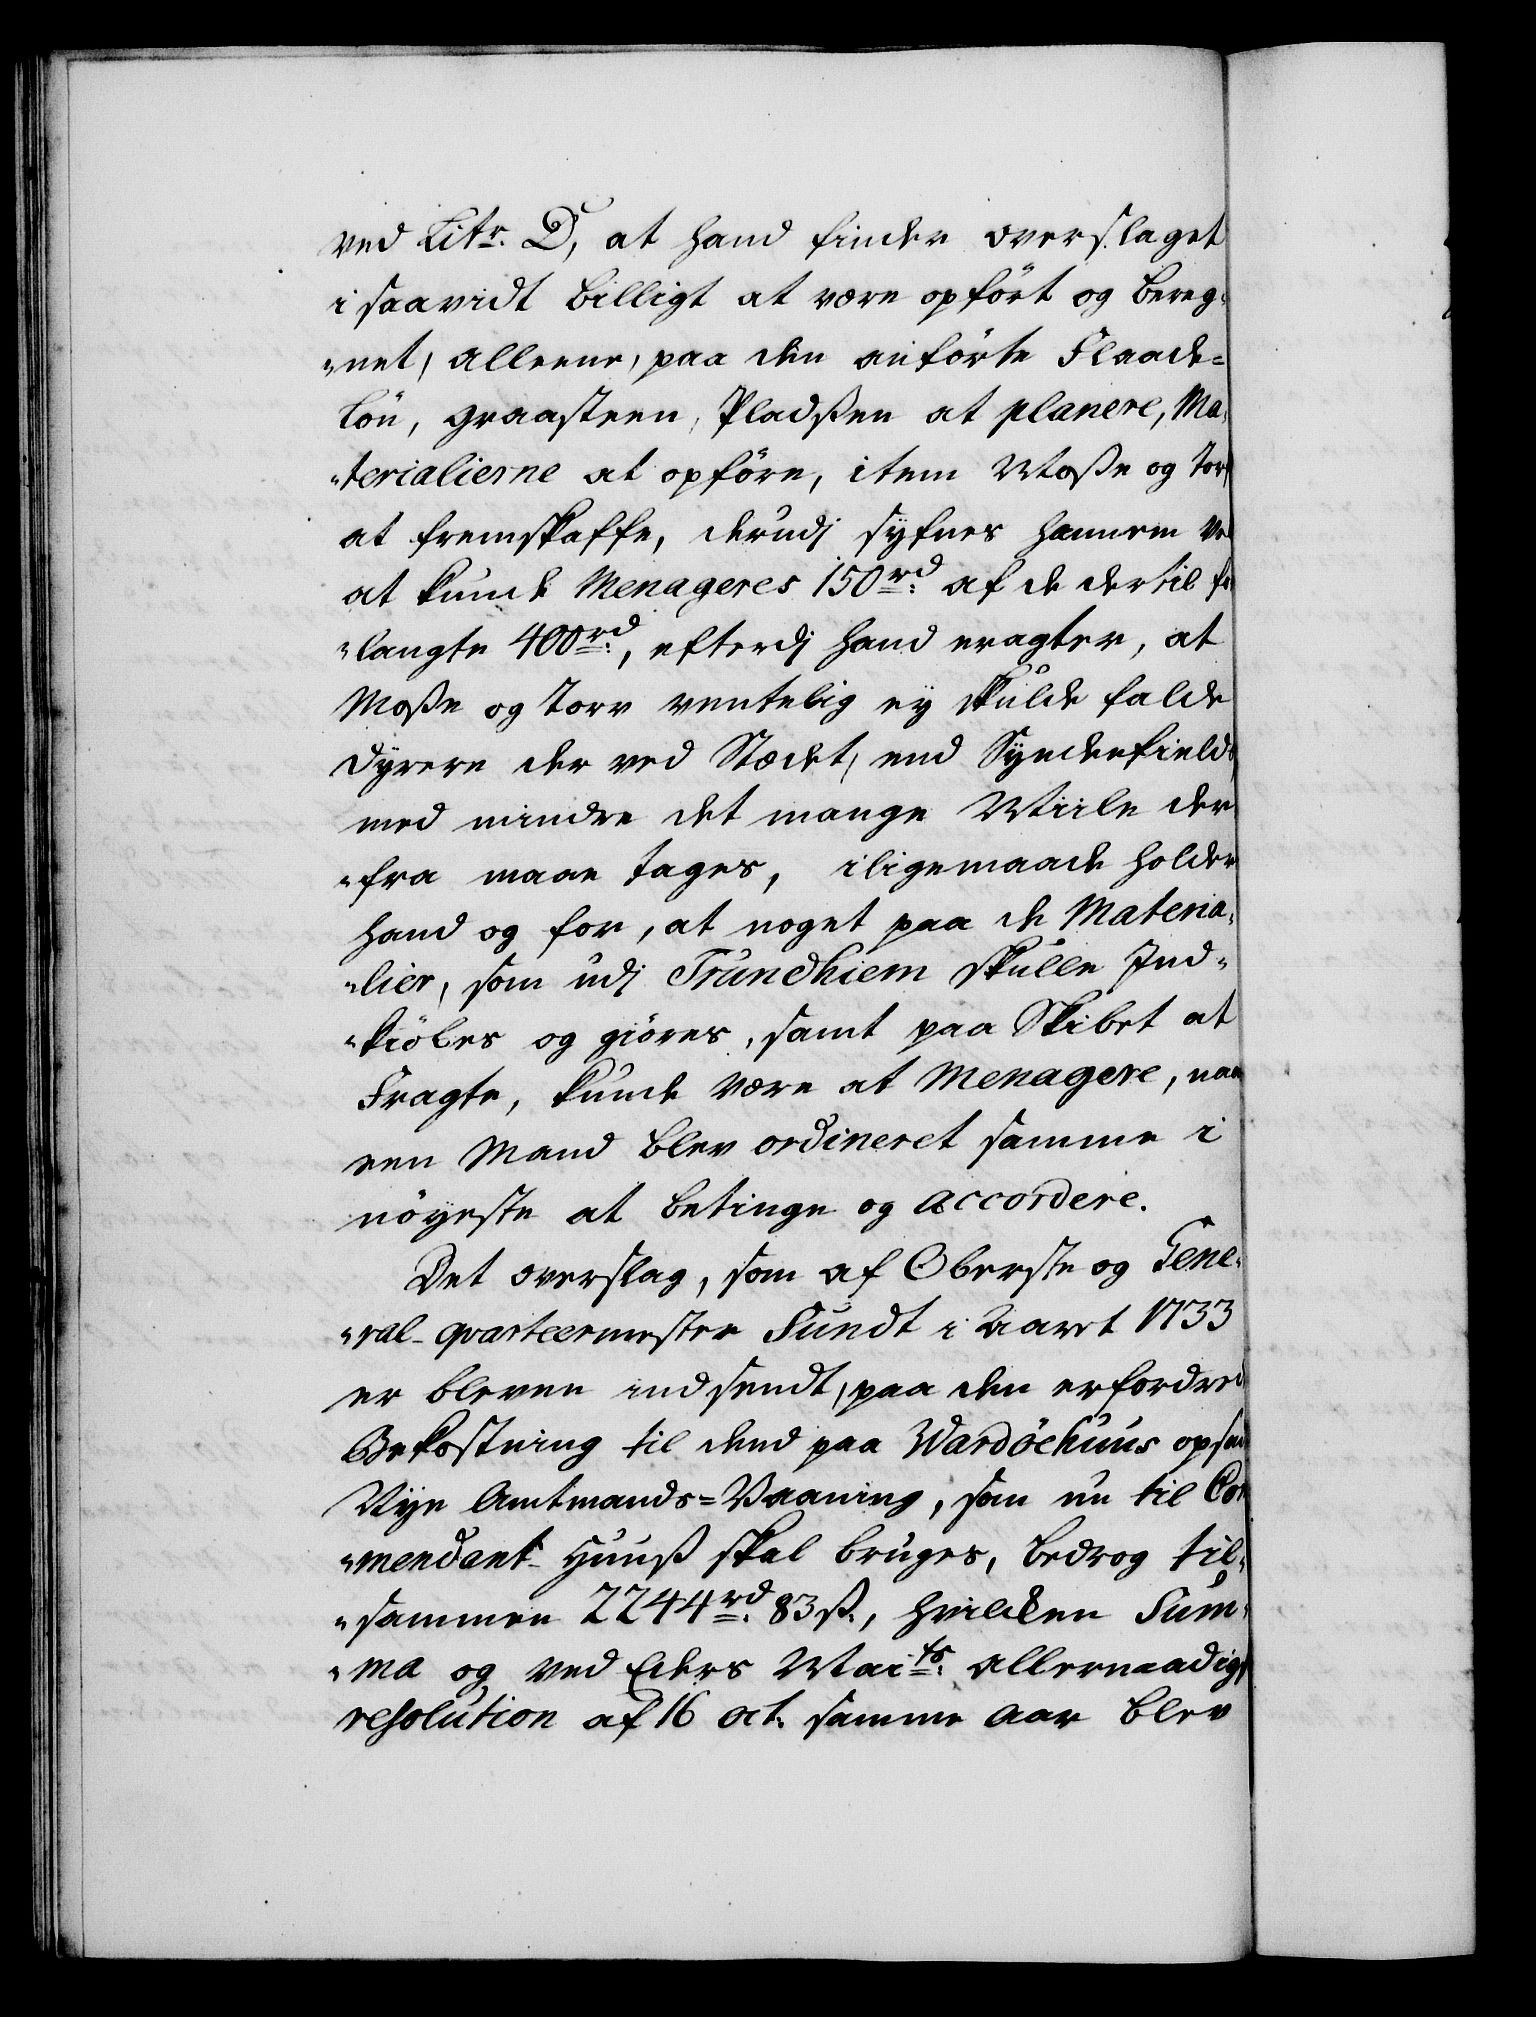 ved Litr. D, at hand finder overslaget
i saavidt billigt at være opført og bereg-
-net, alleene, paa den anførte Flaade-
løn, graasteen, Pladsen at planere, Ma-
-terialierne at opføre, item Moße og Torf
at fremskaffe, derudj syfnes hannem ved
at kunde Menageres 150 rd. af de dertil for-
-langte 400 rd., efterdj hand eragter, at
Moße og Torv ventelig ey skulde falde
dyrere der ved Stædet, end Syndenfields,
med mindre det mange Miile der
-fra maae tages, iligemaade holder
hand og for, at noget paa de Materia-
-lier, som udj Trundhiem skulle Ind-
-kiøbes og giøres, samt paa Skibet at
Fragte, kunde være at Menagere, naar
een Mand blev ordineret samme i
nøyeste at betinge og accordere.
Det overslag, som af Oberste og Gene-
-ral-qvarteermester Fundt i Aaret 1733
er bleven indsendt, paa den erfordrede
Bekostning til dend paa Wardöehuus opsatte
Nye Amtmands-Vaaning, som nu til Com-
-mendant-Huuß skal bruges, bedrog til-
-sammen 2244 rd. 83 ß., hvilcken Sum-
-ma og ved Eders Maits. allernaadigst
resolution af 16 oct. samme Aar blev